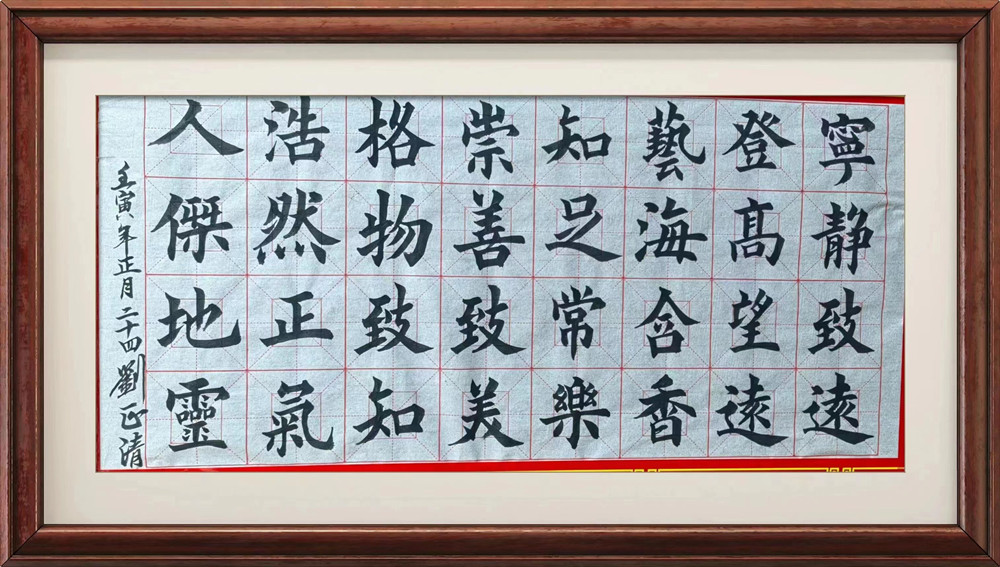 寧静致遠
登髙望遠
藝海含香
知足常樂
崇善致美
格物致知
浩然正氣
人傑地靈
壬寅年正月二十四劉正清